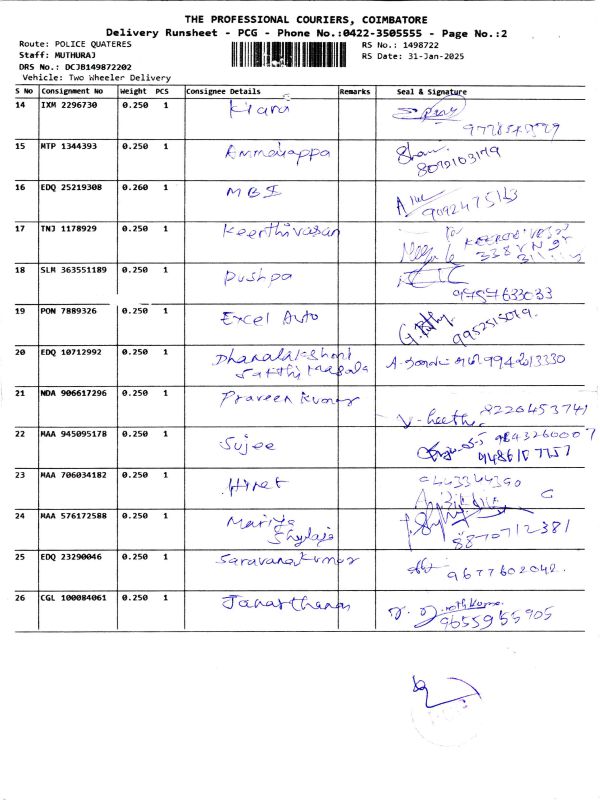 THE PROFESSIONAL COURIERS, COIMBATORE
Delivery Runsheet - PCG - Phone No.:0422-3505555 - Page No.:2
Route: POLICE QUATERES
RS No.: 1498722
Staff: MUTHURAJ
RS Date: 31-Jan-2025
DRS No.: DCJB149872202
Vehicle: Two Wheeler Delivery
S No Consignment No Weight PCS Consignee Details Remarks Seal & Signature
14 IXM 2296730 0.250 1 Kiana
15 MTP 1344393 0.250 1 Ammaiyappa
16 EDQ 25219308 0.260 1 MBI
17 TNJ 1178929 0.250 1 Keerthivasan
18 SLM 363551189 0.250 1 Pushpa
9757633033
19 PON 7889326 0.250 1 Excel Auto
9952515079.
20 EDQ 10712992 0.250 1 Dhanalakshmi
Satthi Masala
21 NDA 906617296 0.250 1 Praveen Kumar
8220453741
22 MAA 945095178 0.250 1 Sujee
23 MAA 706034182 0.250 1
24 MAA 576172588 0.250 1 Mariya
Shylaja
8870712381
25 EDQ 23290046 0.250 1 Saravanakumar
9677602042.
26 CGL 100084061 0.250 1 Janarthanan
9655955905